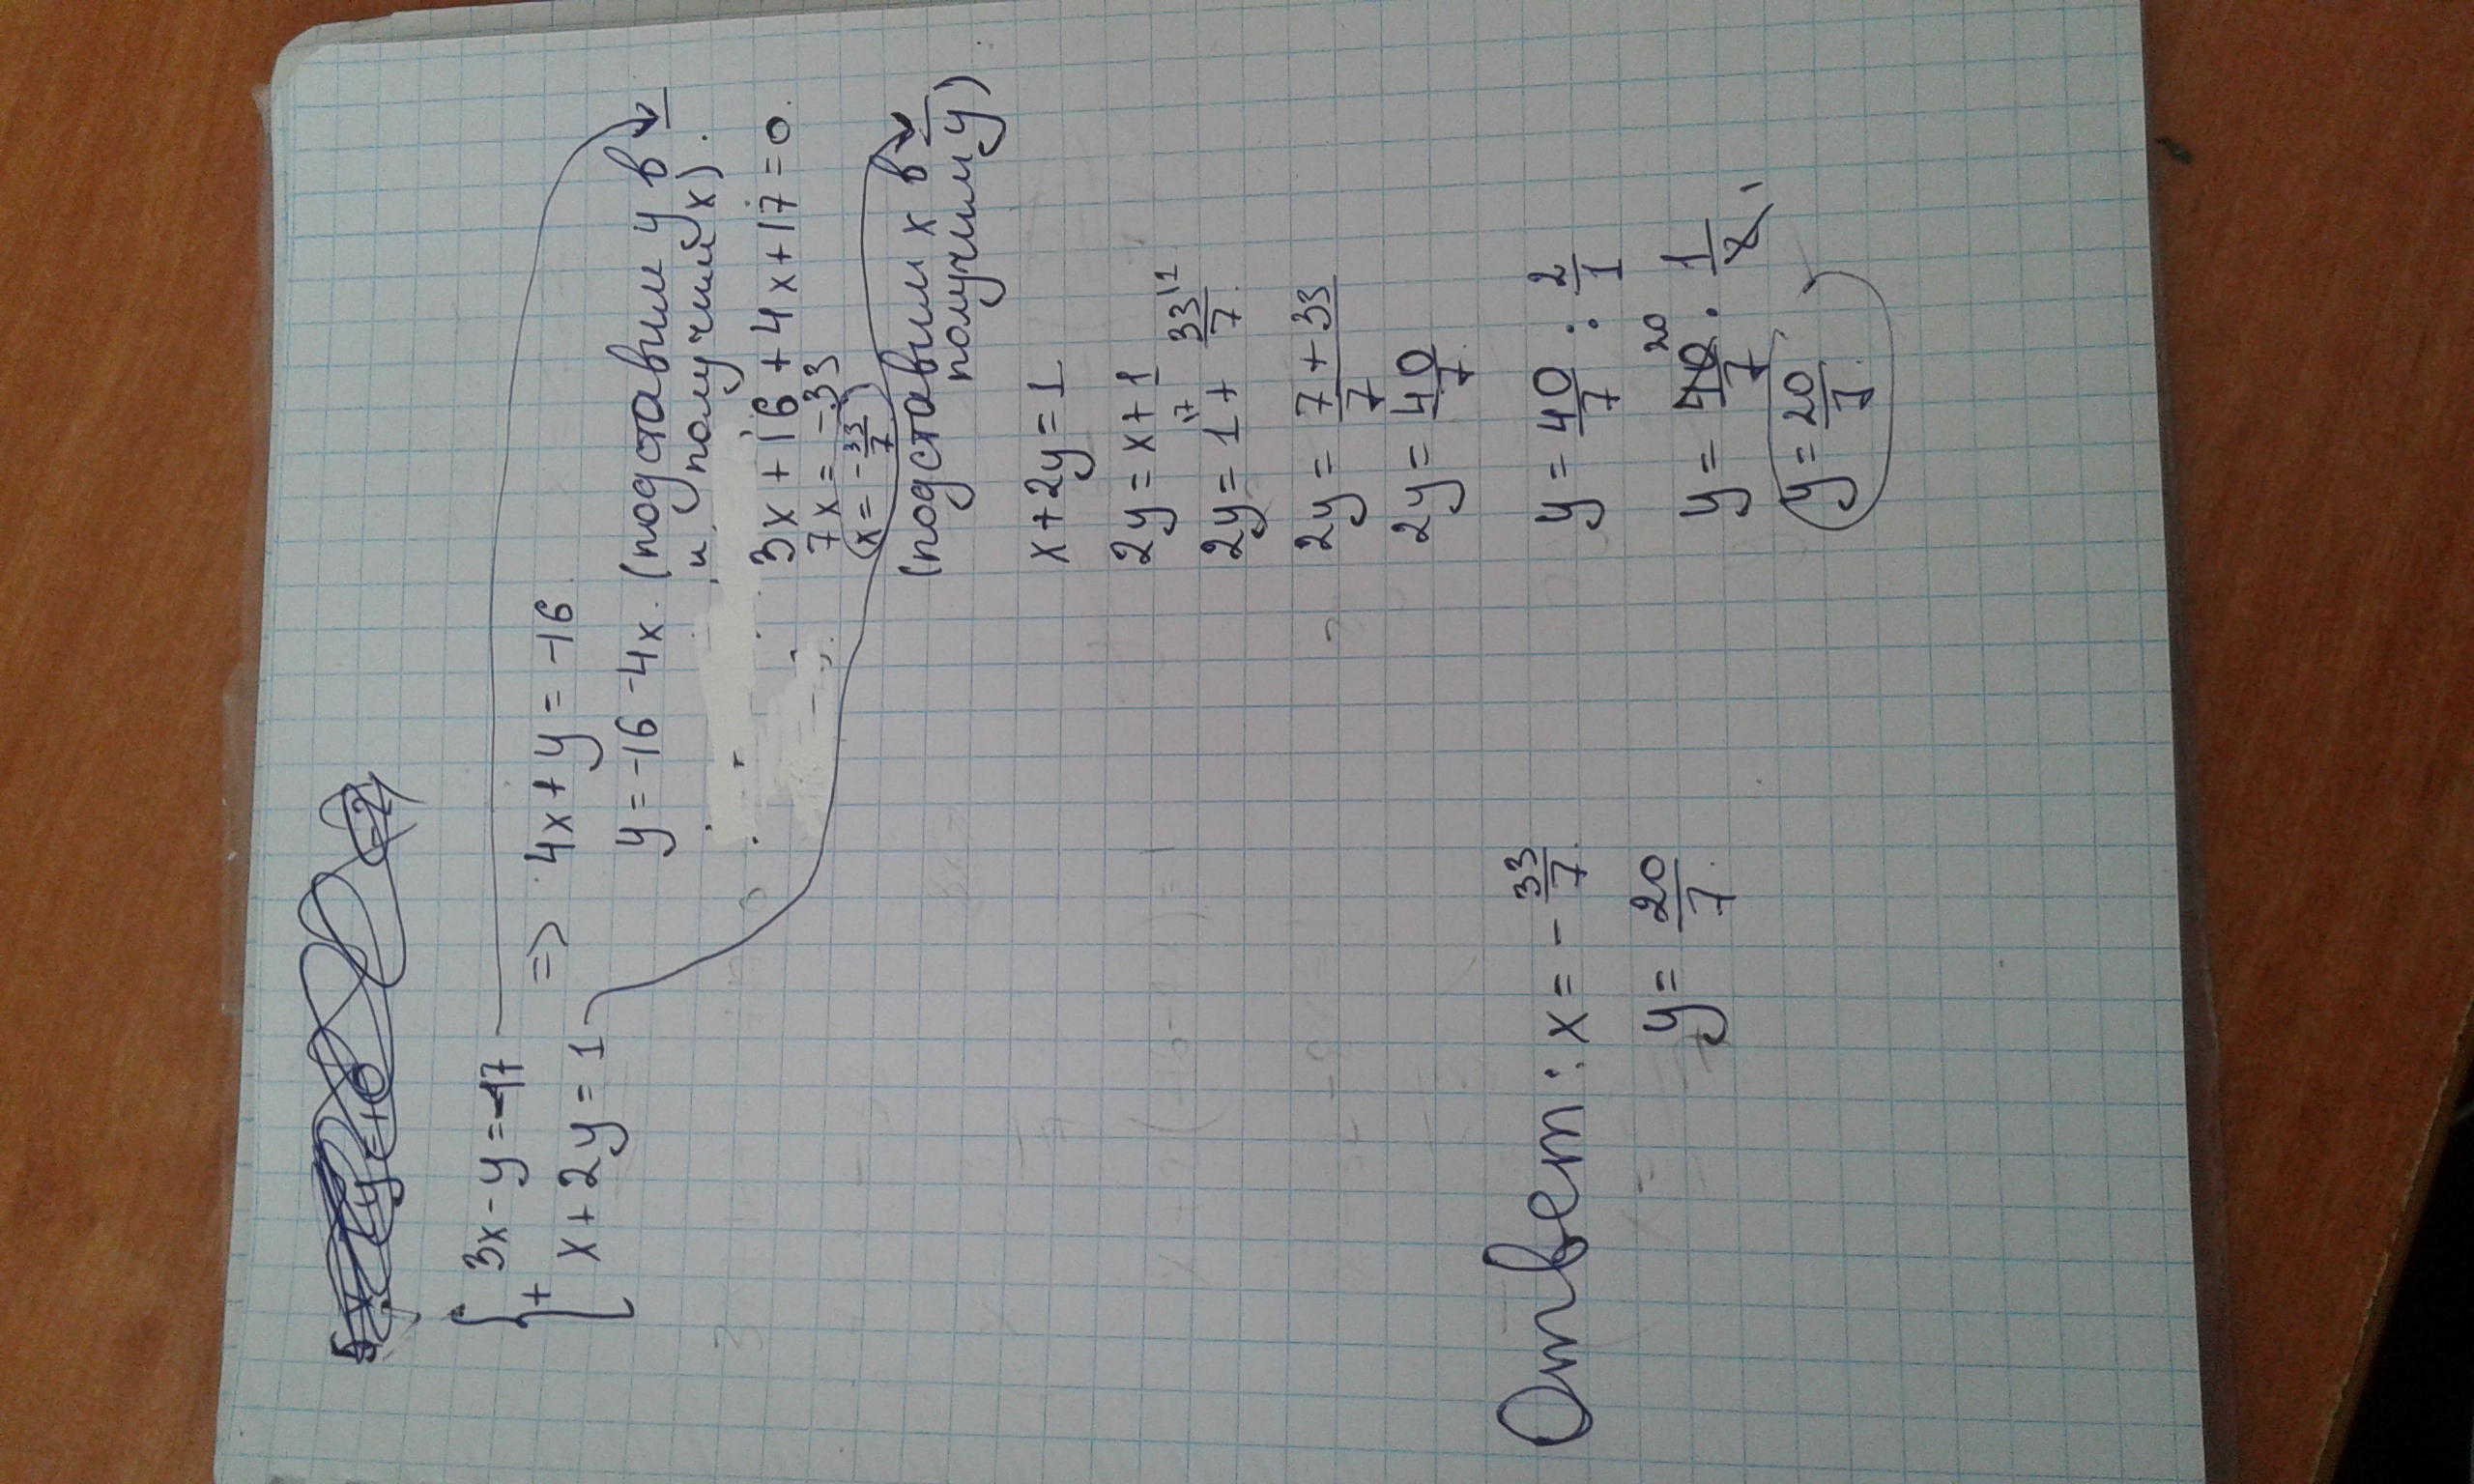 3x - y = -17
+
x + 2y = 1
=> 4x + y = -16.
y = -16 - 4x. (подставим y в
и получим x).
3x + 16 + 4x + 17 = 0.
7x = -33
x = -33/7
(подставим x в
получим y)
x + 2y = 1
2y = x + 1
2y = 1 + 33/7.
2y = 7 + 33/7
2y = 40/7.
y = 40/7 : 2/1
y = 40/7 · 1/2
20
y = 20/7.
Ответ: x = - 33/7.
y = 20/7.